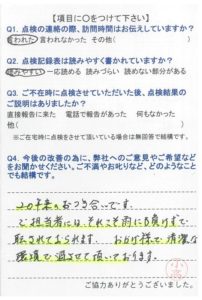 【項目に〇をつけて下さい】
Q1. 点検の連絡の際、訪問時間はお伝えしていますか？
言われた 言われなかった その他（ ）
Q2. 点検記録表は読みやすく書かれていますか？
読みやすい 一応読める 読みづらい 読めない部分がある
Q3. ご不在時に点検をさせていただいた後、点検結果の
ご説明はありましたか？
直接報告に来た 電話で報告があった 何もなかった
他（ ）
※ご在宅時に点検をさせて頂いている場合は無回答で結構です。
Q4. 今後の改善の為に、弊社へのご意見やご希望など
をお聞かせください。ご不満やお叱りなど、どのようなこと
でも結構です。
20年来のおつき合いです。
ご担当者には、それこそ雨にも負けずで
転こられております。 おかげ様で清潔な
環境で過ごさせて頂いております。
ご協力ありがとうございました。